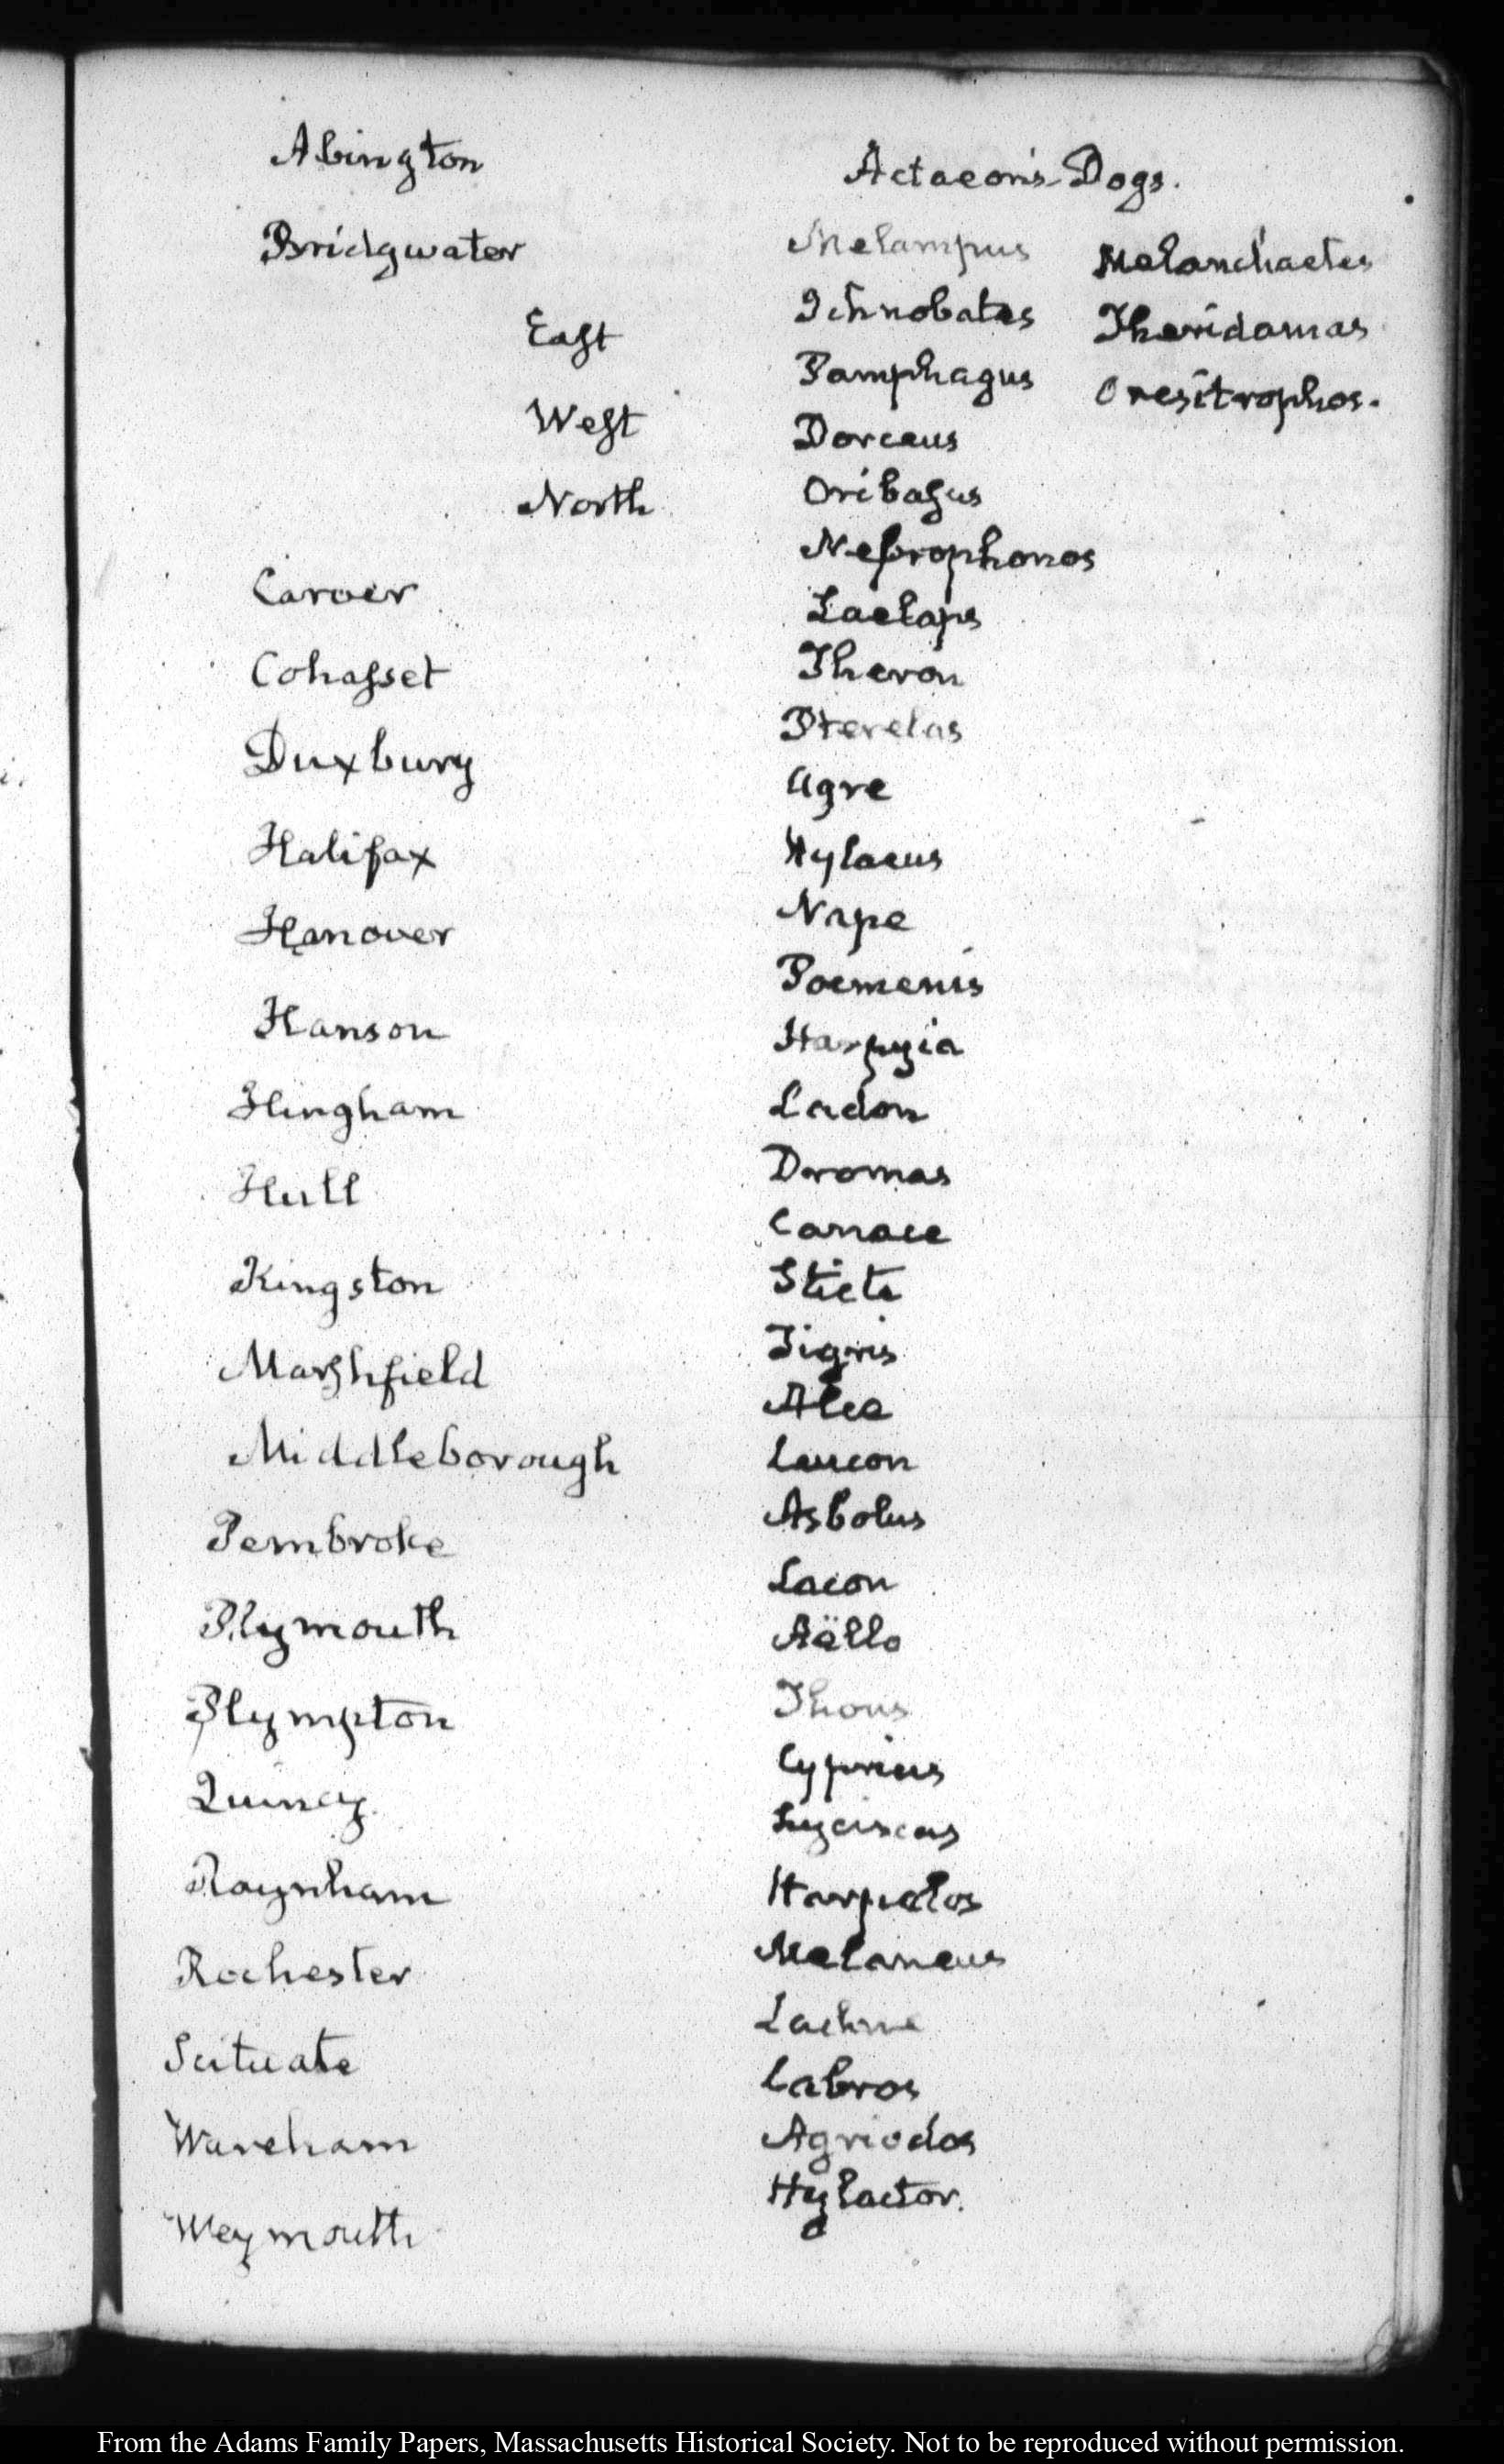 Abington
Bridgwater
East
West
North
Carver
Cohasset
Duxbury
Halifax
Hanover
Hanson
Hingham
Hull
Kingston
Marshfield
Middleborough
Pembroke
Plymouth
Plympton
Quincy
Raynham
Rochester
Scituate
Wareham
Weymouth
Actaeon's Dogs.
Melampus
Ichnobates
Pamphagus
Dorceus
Oribasus
Nebrophonos
Laelaps
Theron
Pterelas
Agre
Hylaeus
Nape
Poemenis
Harpyia
Ladon
Dromas
Canace
Sticte
Tigris
Alce
Leucon
Asbolus
Lacon
Aëllo
Thous
Cyprius
Lyciscas
Harpalos
Melaneus
Lachne
Labros
Agriodos
Hylactor.
Melanchaetes
Theridamas
Oresitrophos.
From the Adams Family Papers, Massachusetts Historical Society. Not to be reproduced without permission.